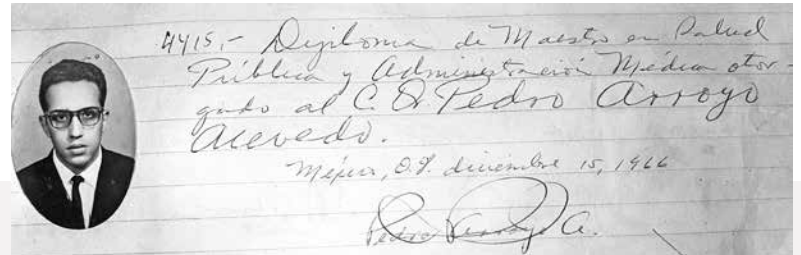 4415,- Diploma de Maestro en Salud
Pública y Administración Médica otor-
gado al C. Dr. Pedro Arroyo
Acevedo.
México, D.F. diciembre 15, 1966
Pedro Arroyo A.